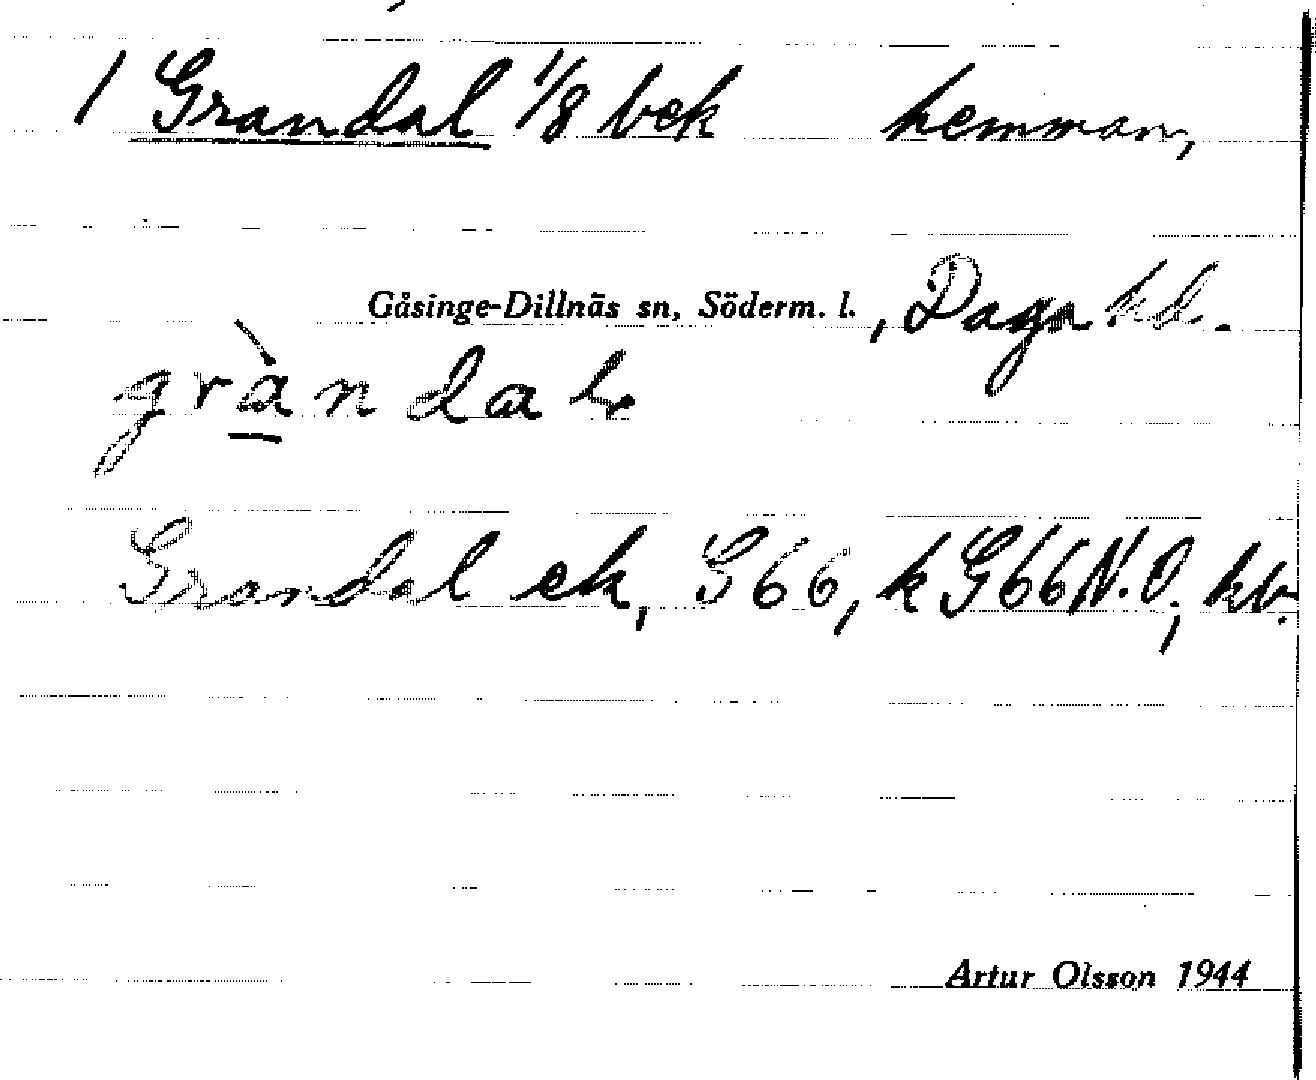 1 Grandal 1/8 bek hemman,
Gåsinge-Dillnäs sn, Söderm. l., Daga hd.
gràndal
Grandal ek, G66, k G66 N.O, kb.
Artur Olsson 1944